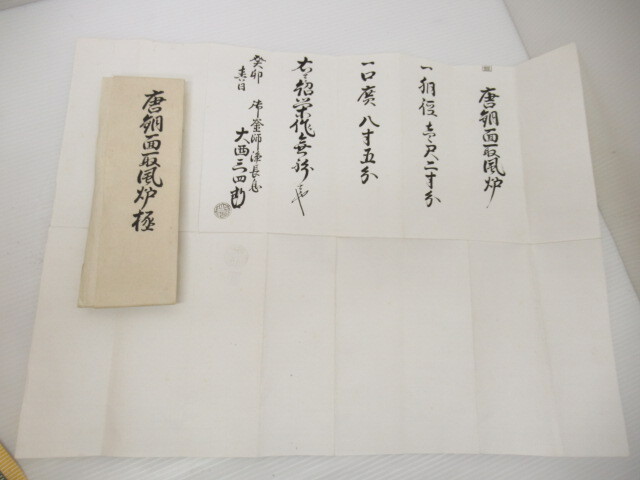 唐銅面取風炉
一胴径壱尺二寸分
一口廣八寸五分
右者紹栄作無疑
癸卯
春日
御釜師浄長家
大西三四郎
唐銅面取風炉極